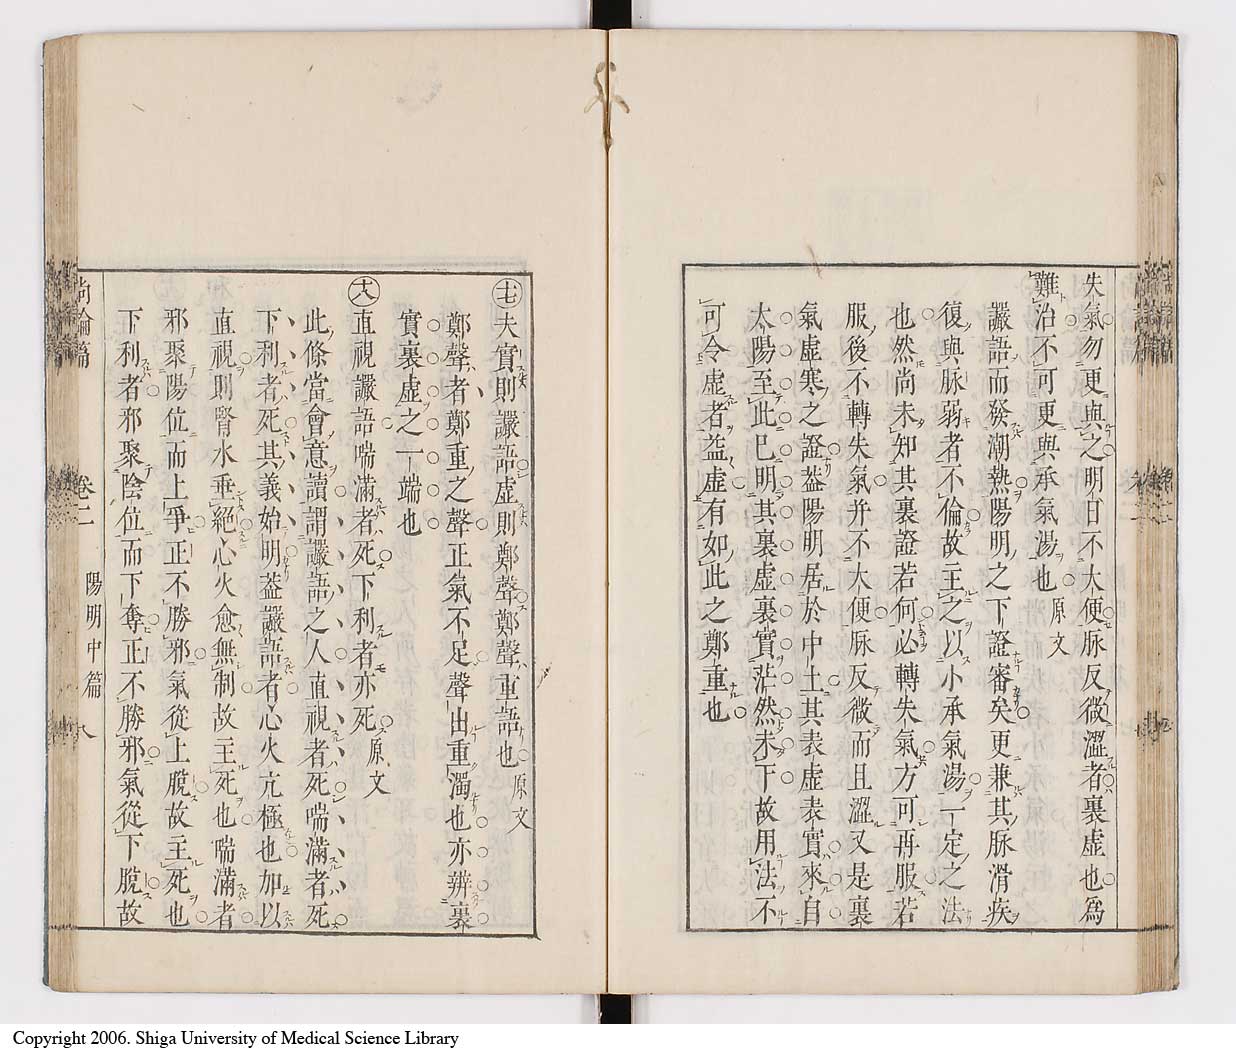 失氣勿更與之明日不大便脉反微澀者裏虛也爲
難治不可更與承氣湯也原文
讝語而發潮熱陽明之下證審矣更兼其脉滑疾
復與脉弱者不倫故主之以小承氣湯一定之法
也然尚未知其裏證若何必轉失氣方可再服若
服後不轉失氣并不大便脉反微而且澀又是裏
氣虛寒之證葢陽明居於中土其表虛表實來自
太陽至此已明其裏虛裏實茫然未下故用法不
可令虛者益虛有如此之鄭重也
十七夫實則讝語虛則鄭聲鄭聲重語也原文
鄭聲者鄭重之聲正氣不足聲出重濁也亦辨裏
實裏虛之一端也
十八直視讝語喘滿者死下利者亦死原文
此條當會意讀謂讝語之人直視者死喘滿者死
下利者死其義始明葢讝語者心火亢極也加以
直視則腎水垂絕心火愈無制故主死也喘滿者
邪聚陽位而上爭正不勝邪氣從上脫故主死也
下利者邪聚陰位而下奪正不勝邪氣從下脫故
尚論篇 卷二 陽明中篇 八
Copyright 2006. Shiga University of Medical Science Library